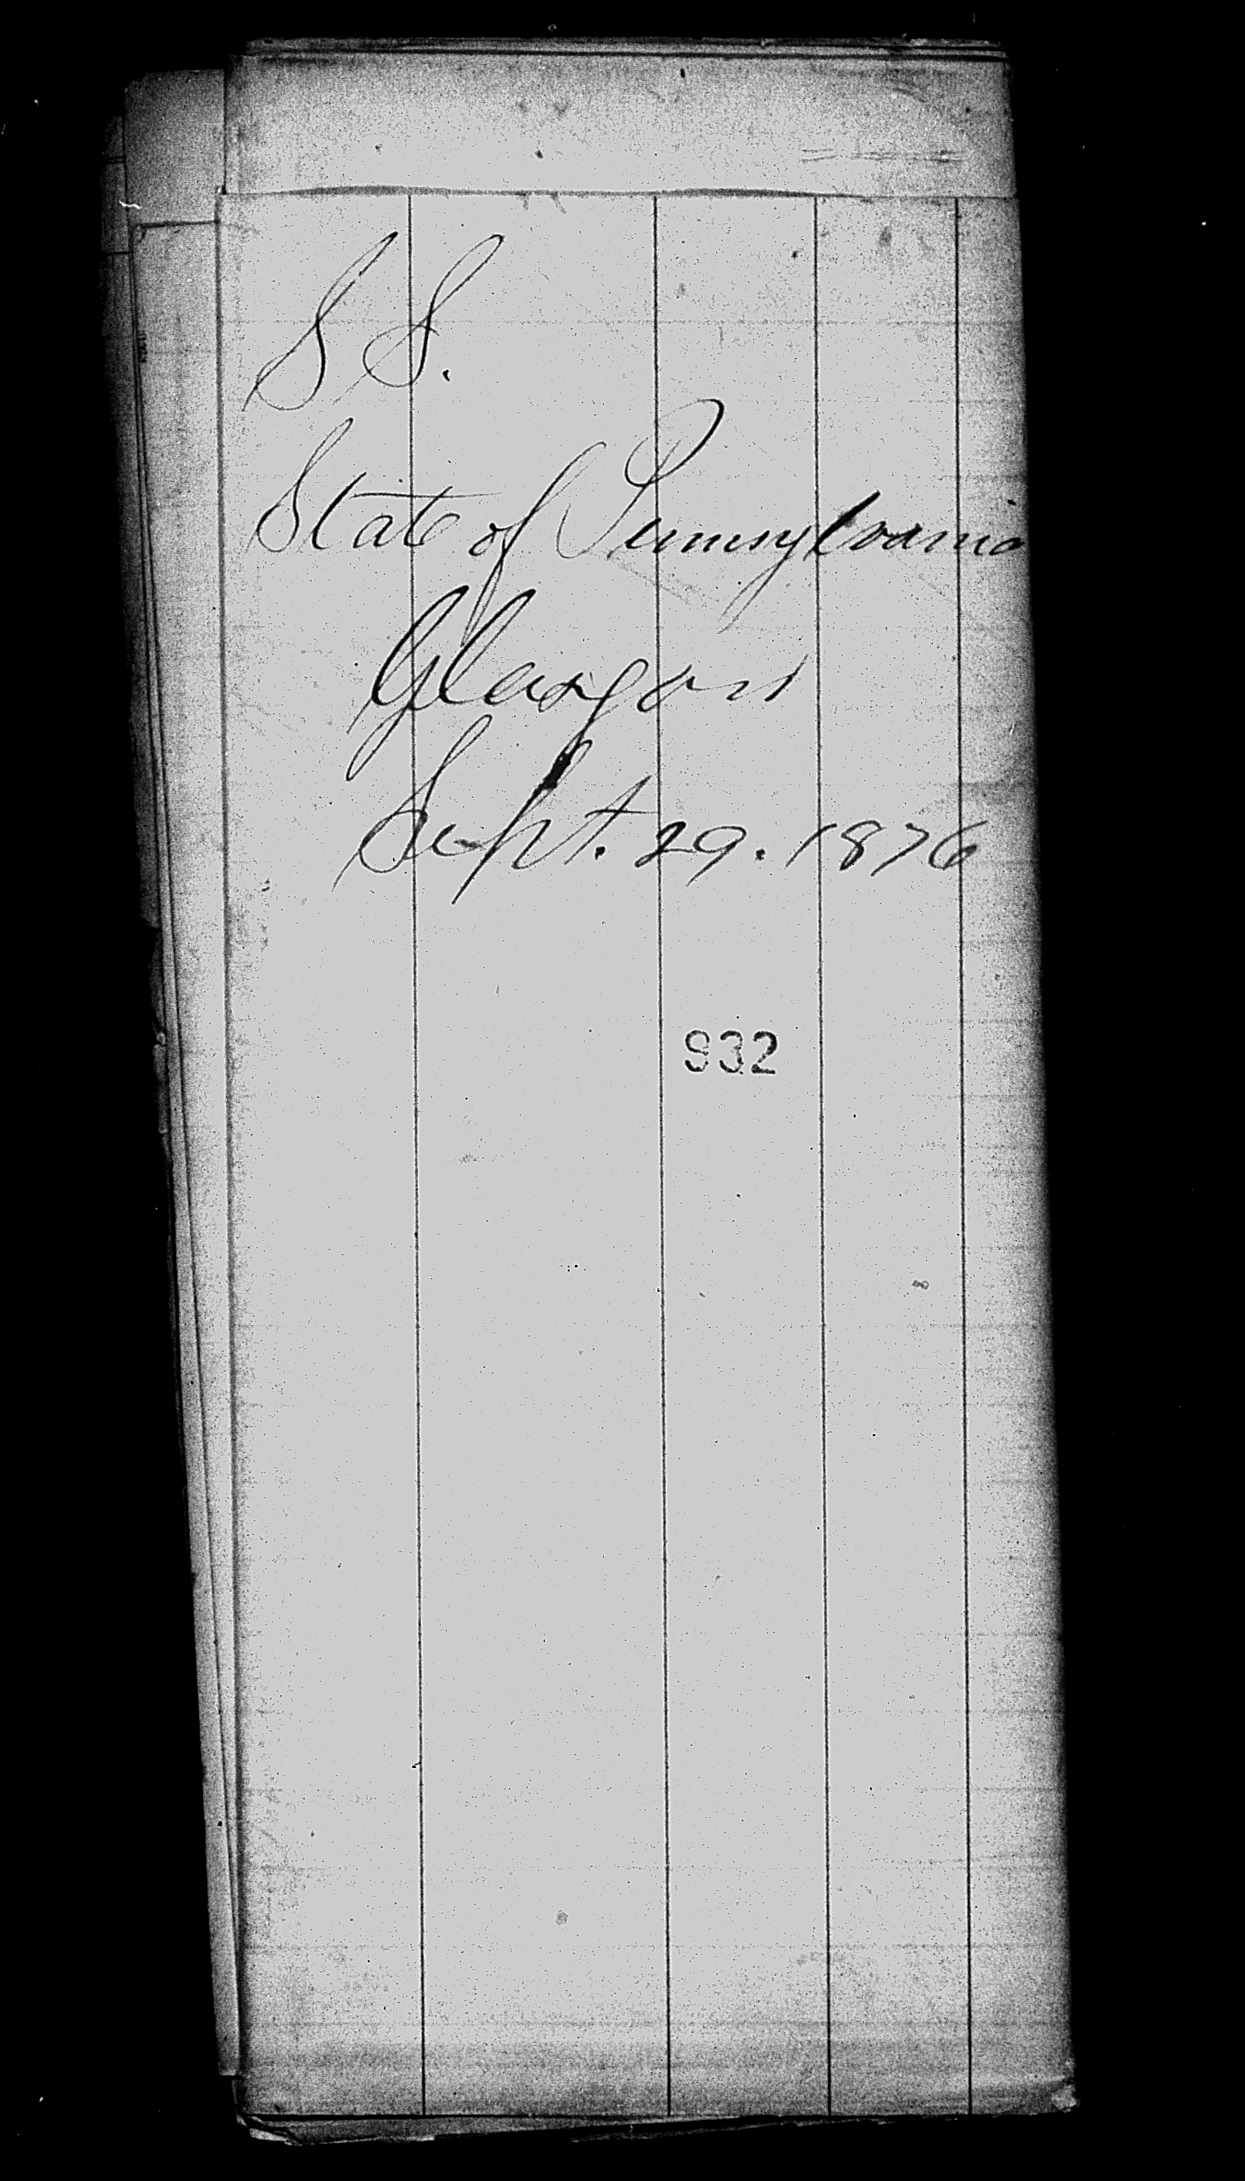 S S.
State of Pennsylvania
Glasgow
Sept. 29. 1876
932